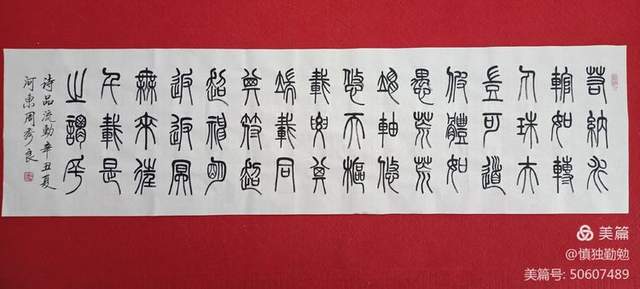 若納水
輨如轉
丸珠夫
豈可道
假體如
愚荒荒
坤軸悠
悠天樞
載要其
端載同
其符超
超神明
返返冥
無來往
千載是
之謂乎
詩品流動辛丑夏
河東周秀良
美篇
@慎独勤勉
美篇号: 50607489